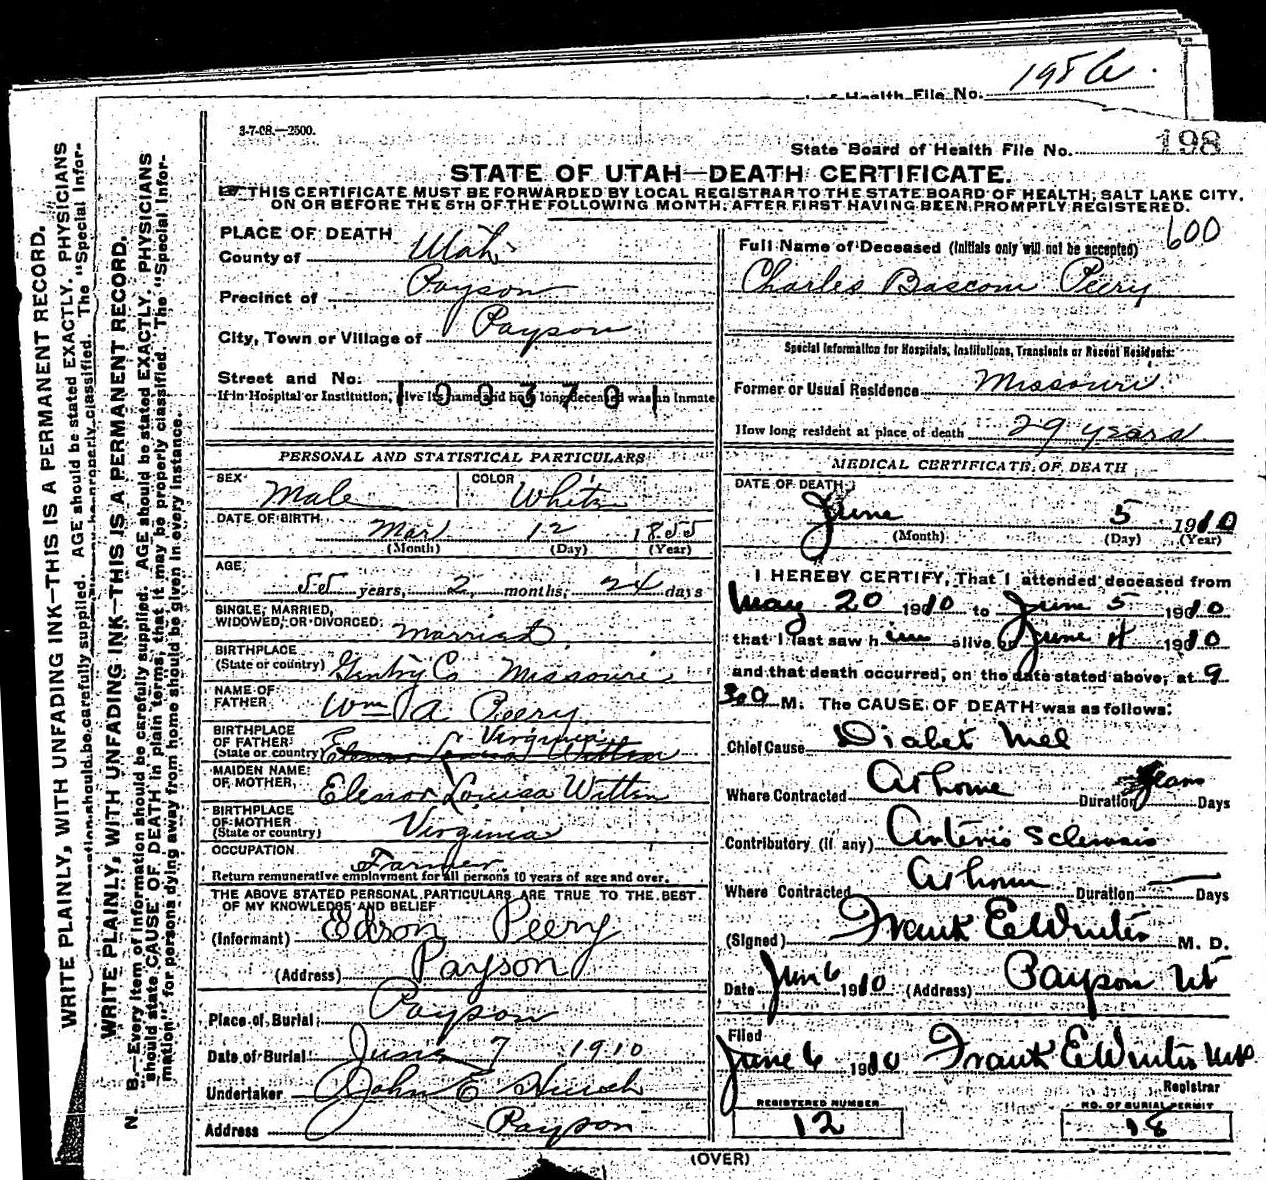 1956
of Health File No.
3-7-08.—2500.
State Board of Health File No. 198
STATE OF UTAH—DEATH CERTIFICATE.
THIS CERTIFICATE MUST BE FORWARDED BY LOCAL REGISTRAR TO THE STATE BOARD OF HEALTH, SALT LAKE CITY,
ON OR BEFORE THE 5TH OF THE FOLLOWING MONTH, AFTER FIRST HAVING BEEN PROMPTLY REGISTERED.
WRITE PLAINLY, WITH UNFADING INK—THIS IS A PERMANENT RECORD.
AGE should be stated EXACTLY. PHYSICIANS
The "Special Infor-
WRITE PLAINLY, WITH UNFADING INK—THIS IS A PERMANENT RECORD.
N. B.—Every item of information should be carefully supplied. AGE should be stated EXACTLY. PHYSICIANS
should state CAUSE OF DEATH in plain terms, that it may be properly classified. The "Special Infor-
mation" for persons dying away from home should be given in every instance.
PLACE OF DEATH
County of Utah
Precinct of Payson
City, Town or Village of Payson
Street and No.
1003701
If in Hospital or Institution, give its name and how long deceased was an inmate
PERSONAL AND STATISTICAL PARTICULARS
SEX Male COLOR White
DATE OF BIRTH Mar 12 1855
(Month) (Day) (Year)
AGE
55 years, 2 months, 24 days
SINGLE, MARRIED,
WIDOWED, OR DIVORCED Married
BIRTHPLACE
(State or country) Gentry Co Missouri
NAME OF
FATHER Wm A. Peery
BIRTHPLACE
OF FATHER Virginia
(State or country) Elenor Louisa Witten
MAIDEN NAME
OF MOTHER Elenor Louisa Witten
BIRTHPLACE
OF MOTHER
(State or country) Virginia
OCCUPATION Farmer
Return remunerative employment for all persons 10 years of age and over.
THE ABOVE STATED PERSONAL PARTICULARS ARE TRUE TO THE BEST
OF MY KNOWLEDGE AND BELIEF
(Informant) Edson Peery
(Address) Payson
Place of Burial Payson
Date of Burial June 7 1910
Undertaker John E
Address Payson
600
Full Name of Deceased (Initials only will not be accepted)
Charles Bascom Peery
Special Information for Hospitals, Institutions, Transients or Recent Residents:
Former or Usual Residence Missouri
How long resident at place of death 29 years
MEDICAL CERTIFICATE OF DEATH
DATE OF DEATH
June 5 1910
(Month) (Day) (Year)
I HEREBY CERTIFY, That I attended deceased from
May 20 1910 to June 5 1910
that I last saw him alive on June 4 1910
and that death occurred, on the date stated above, at 9
30 M. The CAUSE OF DEATH was as follows:
Chief Cause Diabet Mel
Where Contracted At home Duration years Days
Contributory (if any) Arterio Sclerosis
Where Contracted At home Duration — Days
(Signed) Frank E Winter M. D.
Date Jun 6 1910 (Address) Payson Ut
Filed
June 6 1910 Frank E Winter MD
Registrar
REGISTERED NUMBER
12
NO. OF BURIAL PERMIT
18
(OVER)